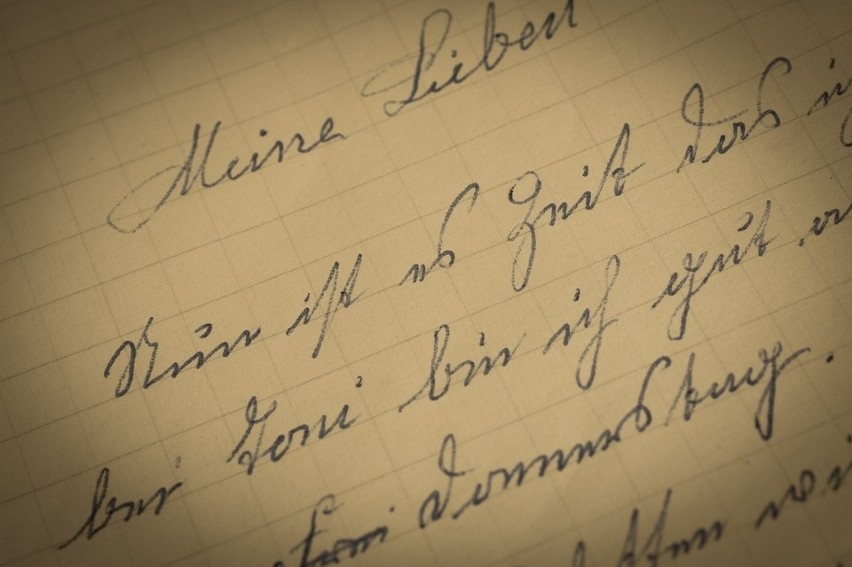 Meine Lieben
Nun ist es Zeit das
bei Toni bin ich gut
Donnerstag.